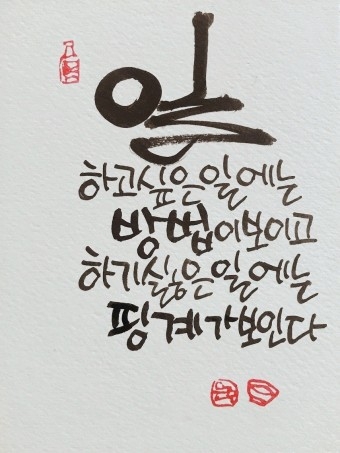 일
하고싶은일에는
방법이보이고
하기싫은일에는
핑계가보인다